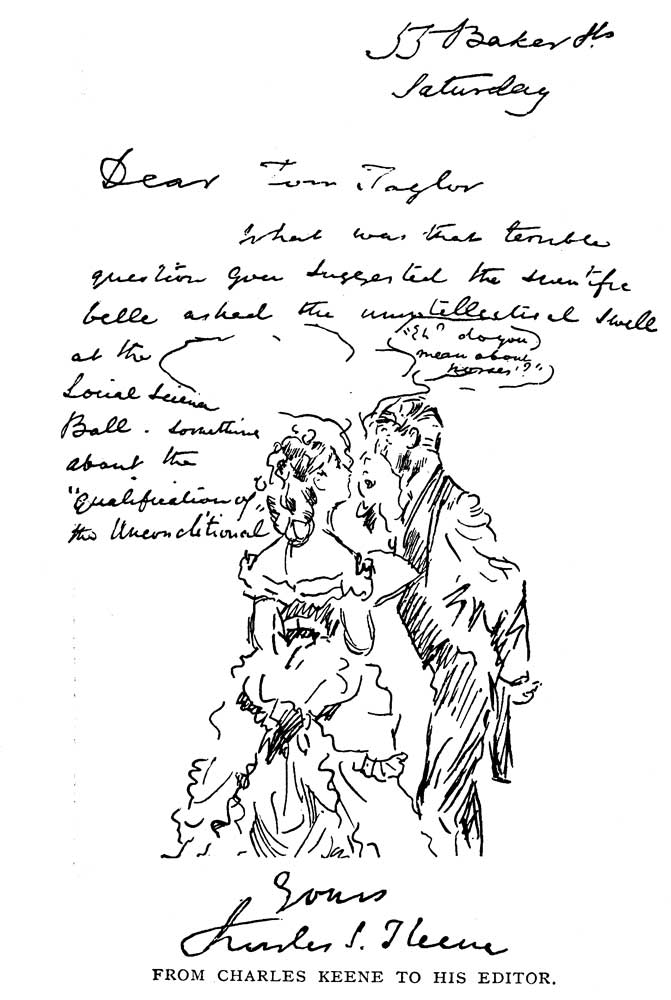 55 Baker St.
Saturday
Dear Tom Taylor
What was that terrible
question you suggested the scientific
belle asked the unintellectual Swell
at the
Social Science
Ball. Something
about the
"qualification of
the Unconditional
"Eh" do you
mean about
horses'?"
Yours
Charles S. Keene
FROM CHARLES KEENE TO HIS EDITOR.